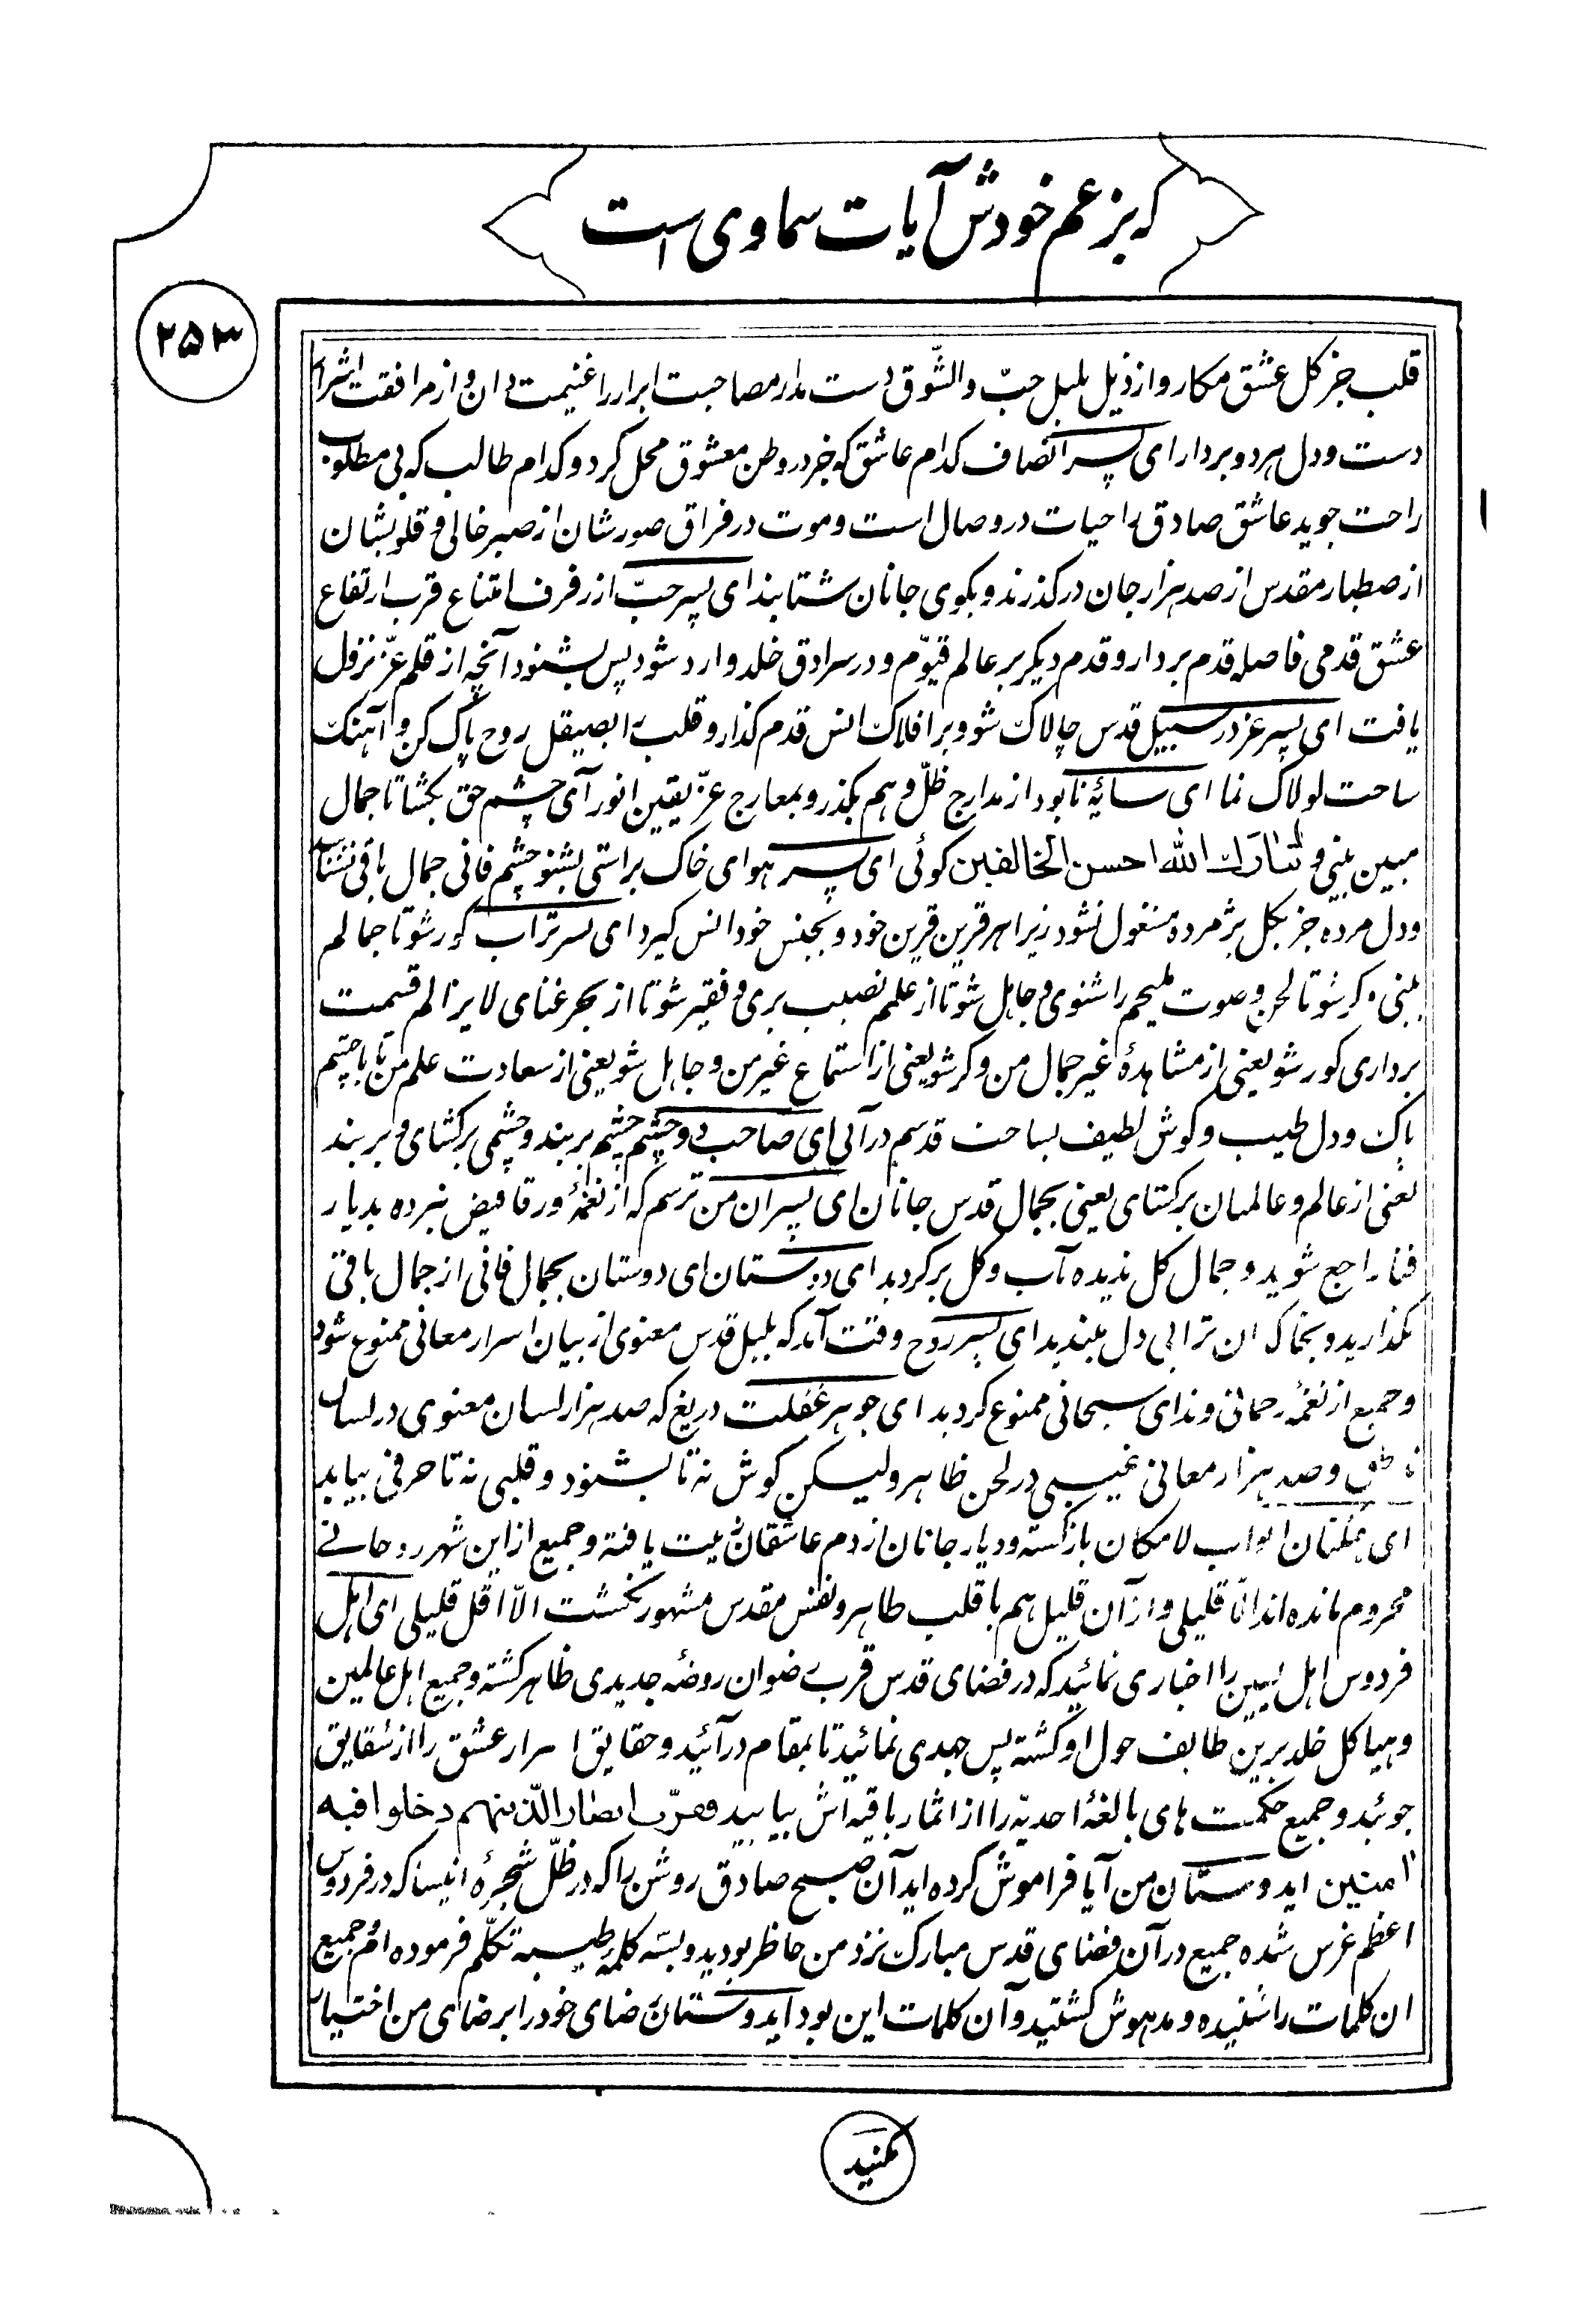 که بزعم خودش آیات سماوی است
۲۵۳
قلب جز گل عشق مکار و از ذیل بلبل حبّ والشّوق دست مدار مصاحبت ابرار را غنیمت دان و از مرافقت اشرار
دست و دل هر دو بردار ای پسر انصاف کدام عاشق که جز در وطن معشوق محل گرد و کدام طالب که بی مطلوب
راحت جوید عاشق صادق را حیات در وصال است و موت در فراق صورشان از صبر خالی و قلوبشان
از صطبار مقدس از صد هزار جان درگذرند و بکوی جانان شتابند ای پسر حبّ از رفرف امتناع قرب ارتفاع
عشق قدمی فاصله قدم بردار و قدم دیگر بر عالم قیوّم و در سرادق خلد وارد شود پس بشنود آنچه از قلم عزّ نزول
یافت ای پسر عز در سبیل قدس چالاک شو و بر افلاک انس قدم گذار و قلب را بصیقل روح پاک کن و آهنگ
ساحت لولاک نما ای سائیه نابود از مدارج ظلّ و هم بگذر و بمعارج عزّ یقین انور آی چشم حق بگشا تا جمال
مبین بینی و تبارک الله احسن الخالقین گوئی ای پسر هوای خاک براستی بشنو چشم فانی جمال باقی نشناسد
و دل مرده جز بگل پژمرده مشغول نشود زیرا هر قرین قرین خود و بجنس خود انس گیرد ای پسر تراب کور شو تا جمالم
بینی و کر شو تا لحن و صوت ملیحم را شنوی و جاهل شو تا از علمم نصیب بری و فقیر شو تا از بحر غنای لایزالم قسمت
برداری کور شو یعنی از مشاهدهٔ غیر جمال من و کر شو یعنی از استماع غیر من و جاهل شو یعنی از سعادت علم من تا با چشم
پاک و دل طیب و گوش لطیف بساحت قدسم درآئی ای صاحب دو چشم چشم بربند و چشمی برگشای و بربند
یعنی از عالم و عالمیان برگشای یعنی بجمال قدس جانان ای پسران من ترسم که از نغمهٔ ورقا فیض نبرده بدیار
فنا راجع شوید و جمال گل ندیده بآب و گل برگردید ای دوستان ای دوستان بجمال فانی از جمال باقی
نگذارید و بخاکدان ترابی دل مبندید ای پسر روح وقتت آمد که بلبل قدس معنوی از بیان اسرار معانی ممنوع شود
و جمیع از نغمهٔ رحمانی و ندای سبحانی ممنوع گردید ای جوهر غفلت دریغ که صد هزار لسان معنوی در لسان
ناطق و صد هزار معانی غیبی در لحن ظاهر ولیکن گوش نه تا بشنود و قلبی نه تا حرفی بیابد
ای همگنان ابواب لامکان باز گشته و دیار جانان از دم عاشقان زینت یافته و جمیع از این شهر روحانی
محروم مانده اند الّا قلیلی و از آن قلیل هم با قلب طاهر و نفس مقدس مشهور نگشت الّا اقل قلیلی ای اهل
فردوس اهل یمین را اخباری نمائید که در فضای قدس قرب رضوان روضه جدیدی ظاهر گشته و جمیع اهل عالمین
و هیاکل خلد برین طایف حول او گشته پس جهدی نمائید تا بمقام درآئید و حقایق اسرار عشق را از شقایق
جوئید و جمیع حکمت های بالغهٔ احدیّه را از اثمار باقیه اش بیابید فقرّت ابصار الذینهم دخلوا فیه
آمنین ایدوستان من آیا فراموش کرده اید آن صبح صادق روشن را که در ظلّ شجرهٔ انیسا که در فردوس
اعظم غرس شده جمیع در آن فضای قدس مبارک نزد من حاظر بودید و بسّه کلمهٔ طیبه تکلّم فرموده ام جمیع
ان کلمات را شنیده و مدهوش گشتید و آن کلمات این بود ایدوستان رضای خود را بر رضای من اختیار
مکنید